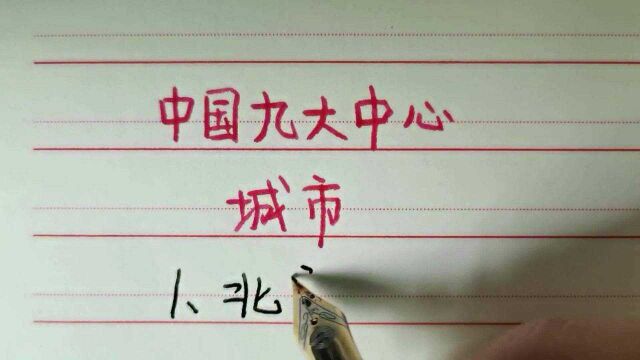 中国九大中心
城市
1、北